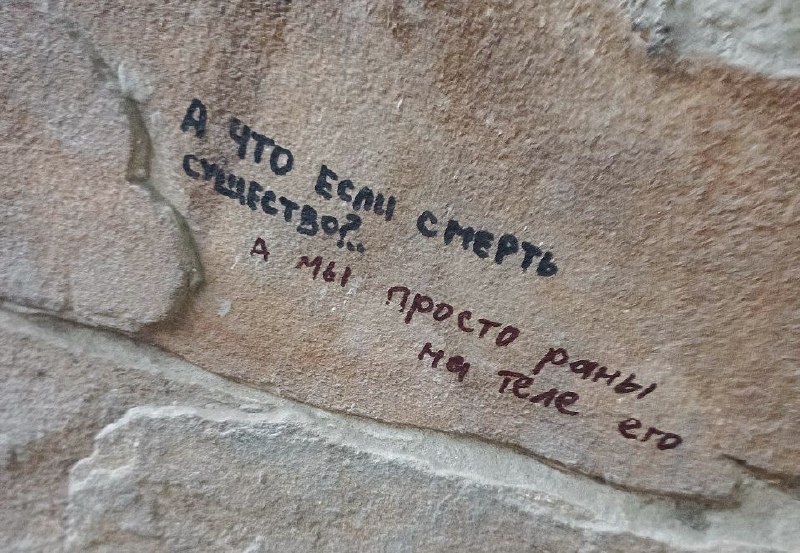 А ЧТО ЕСЛИ СМЕРТЬ
СУЩЕСТВО?..
А мы просто раны
на теле его